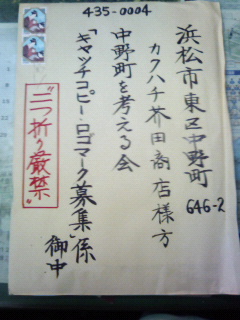 435-0004
浜松市東区中野町
646-2
カクハチ芥田商店様方
中野町を考える会
「キャッチコピー・ロゴマーク募集」係
御中
"二つ折り厳禁"